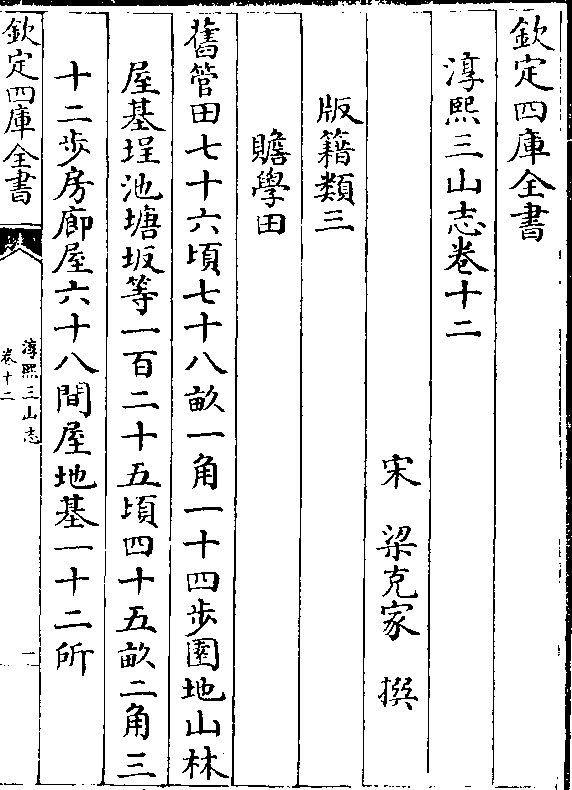 欽定四庫全書
淳熙三山志卷十二
宋 梁克家 撰
版籍類三
贍學田
舊管田七十六頃七十八畝一角一十四歩園地山林
屋基埕池塘坂等一百二十五頃四十五畝二角三
十二歩房廊屋六十八間屋地基一十二所
欽定四庫全書
淳熙三山志
卷十二
一